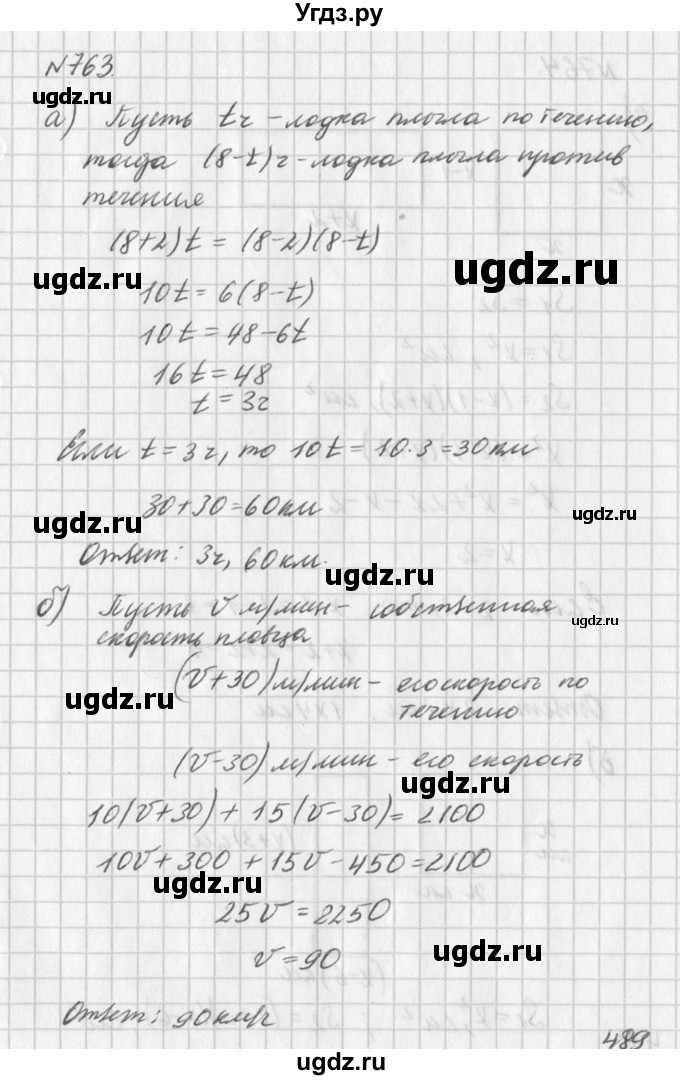 Угдз.ру
№763.
ugdz.ru
а) Пусть tч – лодка плыла по течению,
тогда (8-t)ч – лодка плыла против
течения
(8+2)t = (8-2)(8-t)
ugdz.ru
ugdz.ru
10t = 6(8-t)
10t = 48-6t
16t = 48
t = 3ч
Если t = 3ч, то 10t = 10·3 = 30км
30+30 = 60км
ugdz.ru
ugdz.ru
Ответ: 3ч, 60км.
ugdz.ru
б) Пусть v м/мин – собственная
ugdz.ru
скорость пловца
(v+30) м/мин – его скорость по
ugdz.ru
течению
(v-30) м/мин – его скорость
ugdz.ru
10(v+30) + 15(v-30) = 2100
10v+300 + 15v-450 = 2100
ugdz.ru
25v = 2250
ugdz.ru
v = 90
Ответ: 90км/ч
489
ugdz.ru
©ugdz.ru